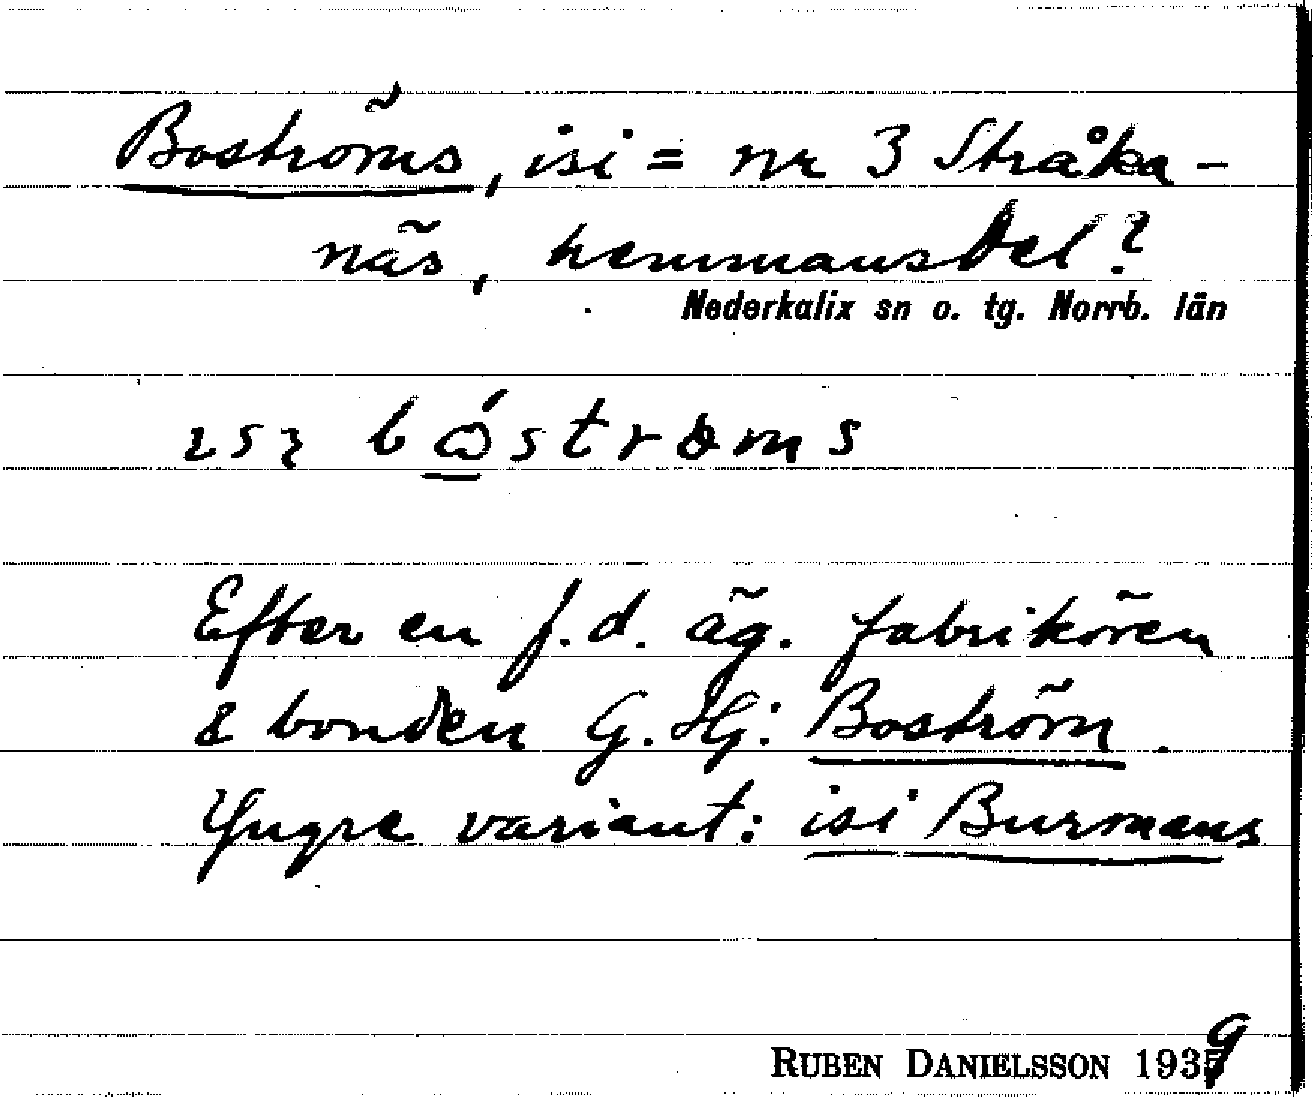 Boströms, isi = nr 3 Stråka-
näs, hemmansdel?
Nederkalix sn o. tg. Norrb. län
ɩsɩ bóströms
Efter en f.d. äg. fabrikören
& bonden G. Hj: Boström.
Yngre variant: isi Burmans
RUBEN DANIELSSON 1939